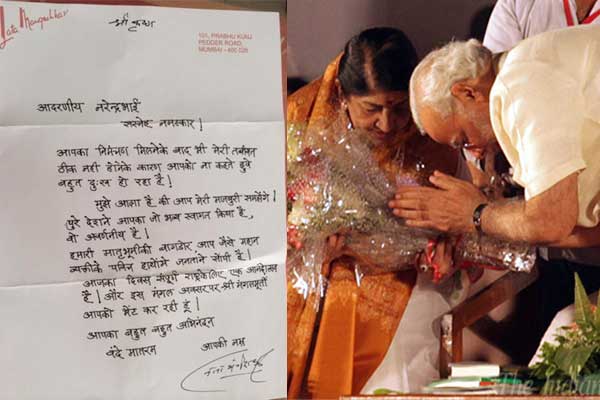 Lata Mangeshkar
श्री कृष्ण
101, PRABHU KUNJ
PEDDER ROAD,
MUMBAI - 400 026
आदरणीय नरेन्द्रभाई
सस्नेह नमस्कार!
आपका निमंत्रण मिलनेके बाद भी मेरी तबीयत
ठीक नहीं होनेके कारण आपको ना कहते हुवे
बहुत दुःख हो रहा है!
मुझे आशा है की आप मेरी मजबुरी समझेंगे।
पुरे देशने आपका जो भव्य स्वागत किया है,
वो अवर्णनीय है!
हमारी मातृभूमीकी बागडोर आप जैसे महान
व्यक्तीके पवित्र हाथोमे जनताने सौंपी है!
आजका दिवस संपूर्ण राष्ट्रकेलिए एक आनंदोत्सव
है! और इस मंगल अवसरपर श्री मंगलमूर्ती
आपको भेंट कर रही हूं!
आपका बहुत बहुत अभिनंदन
वंदे मातरम आपकी नम्र
लता मंगेशकर
The Indian